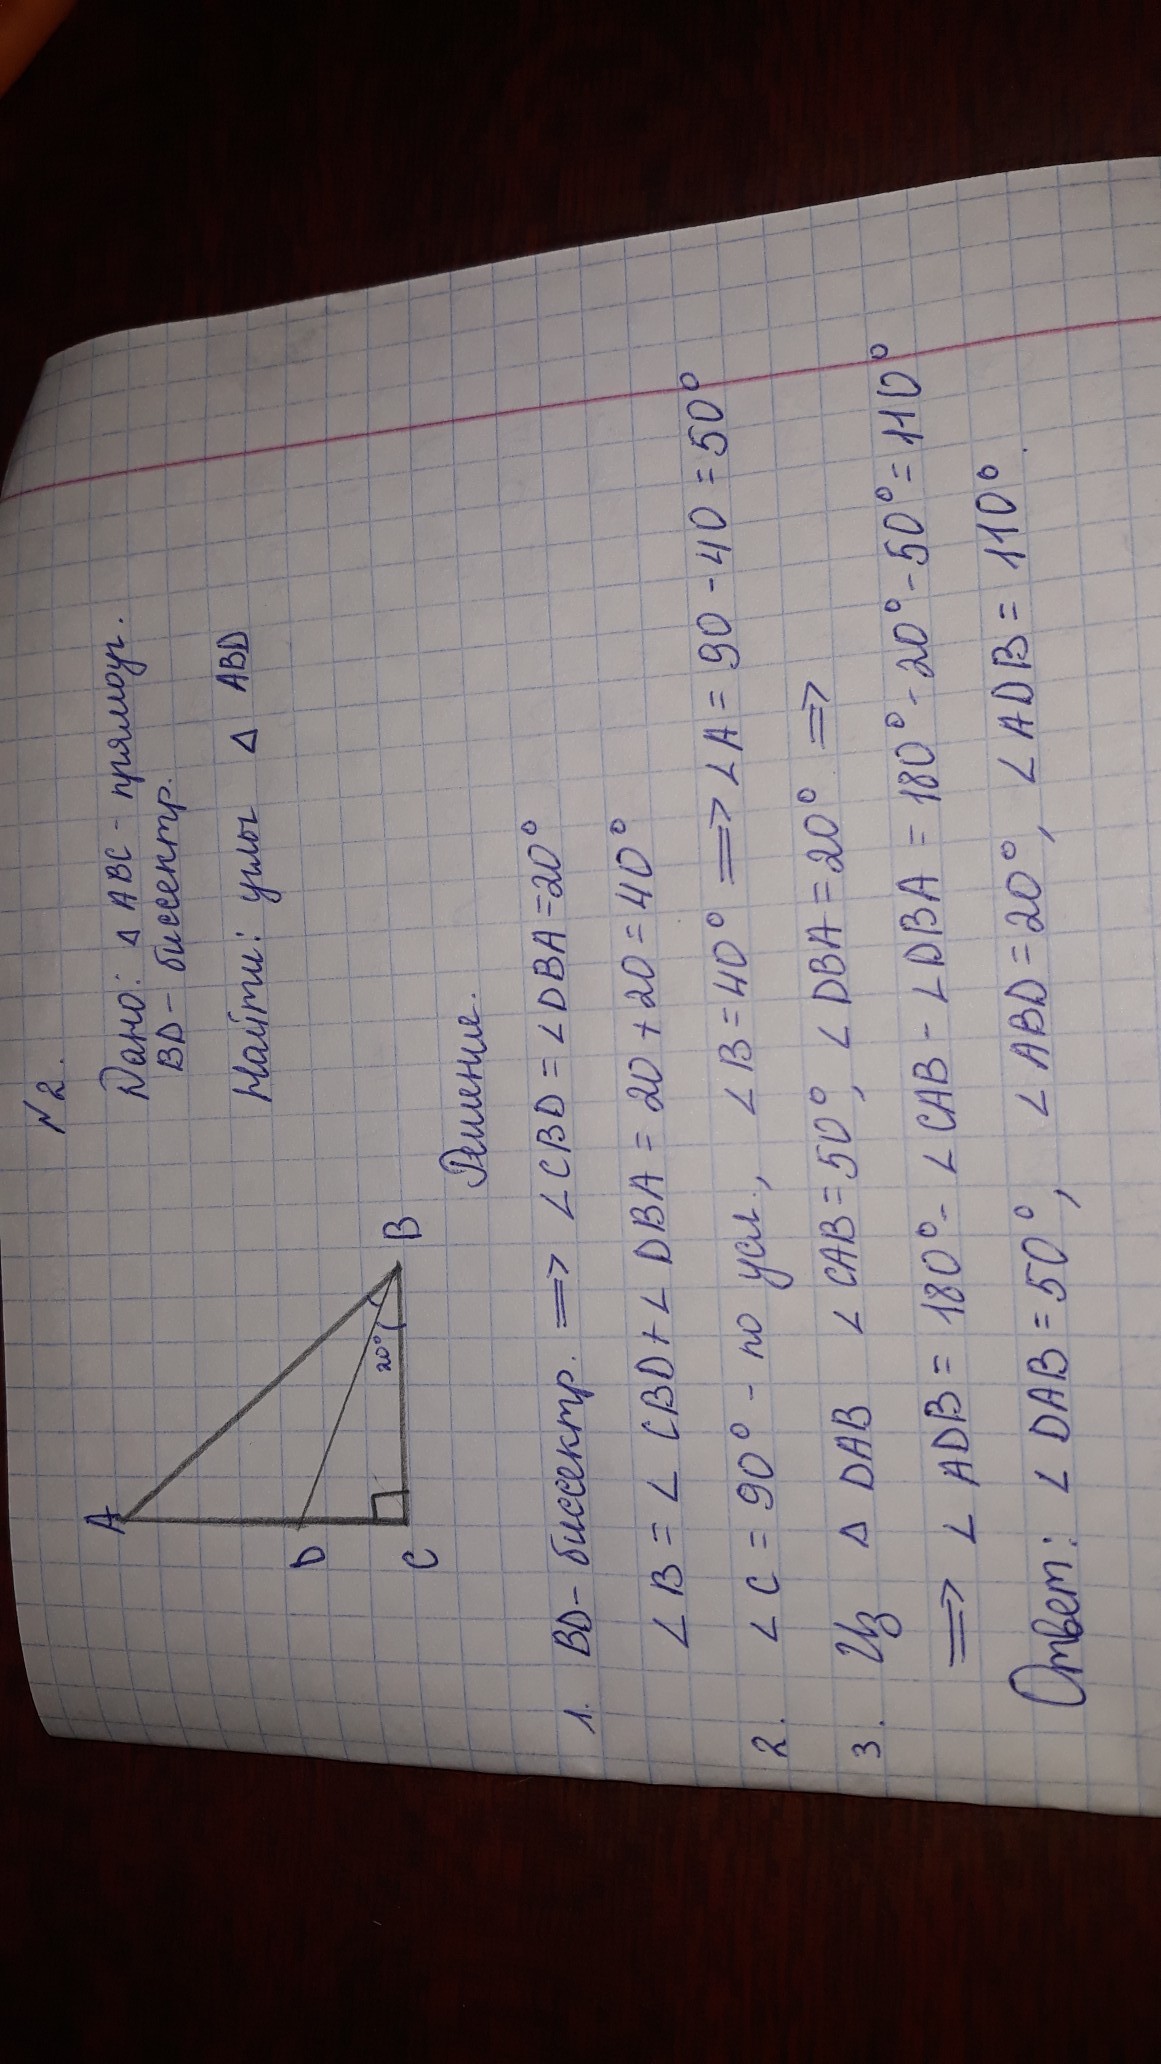 №2.
Дано: Δ ABC - прямоуг.
BD - биссектр.
Найти: углы Δ ABD
A
D
C
B
20°
Решение.
1. BD - биссектр. ⟹ ∠CBD = ∠DBA = 20°
∠B = ∠CBD + ∠DBA = 20 + 20 = 40°
2. ∠C = 90° - по усл., ∠B = 40° ⟹ ∠A = 90 - 40 = 50°
3. Из Δ DAB ∠CAB = 50°, ∠DBA = 20° ⟹
⟹ ∠ADB = 180° - ∠CAB - ∠DBA = 180° - 20° - 50° = 110°
Ответ: ∠DAB = 50°, ∠ABD = 20°, ∠ADB = 110°.